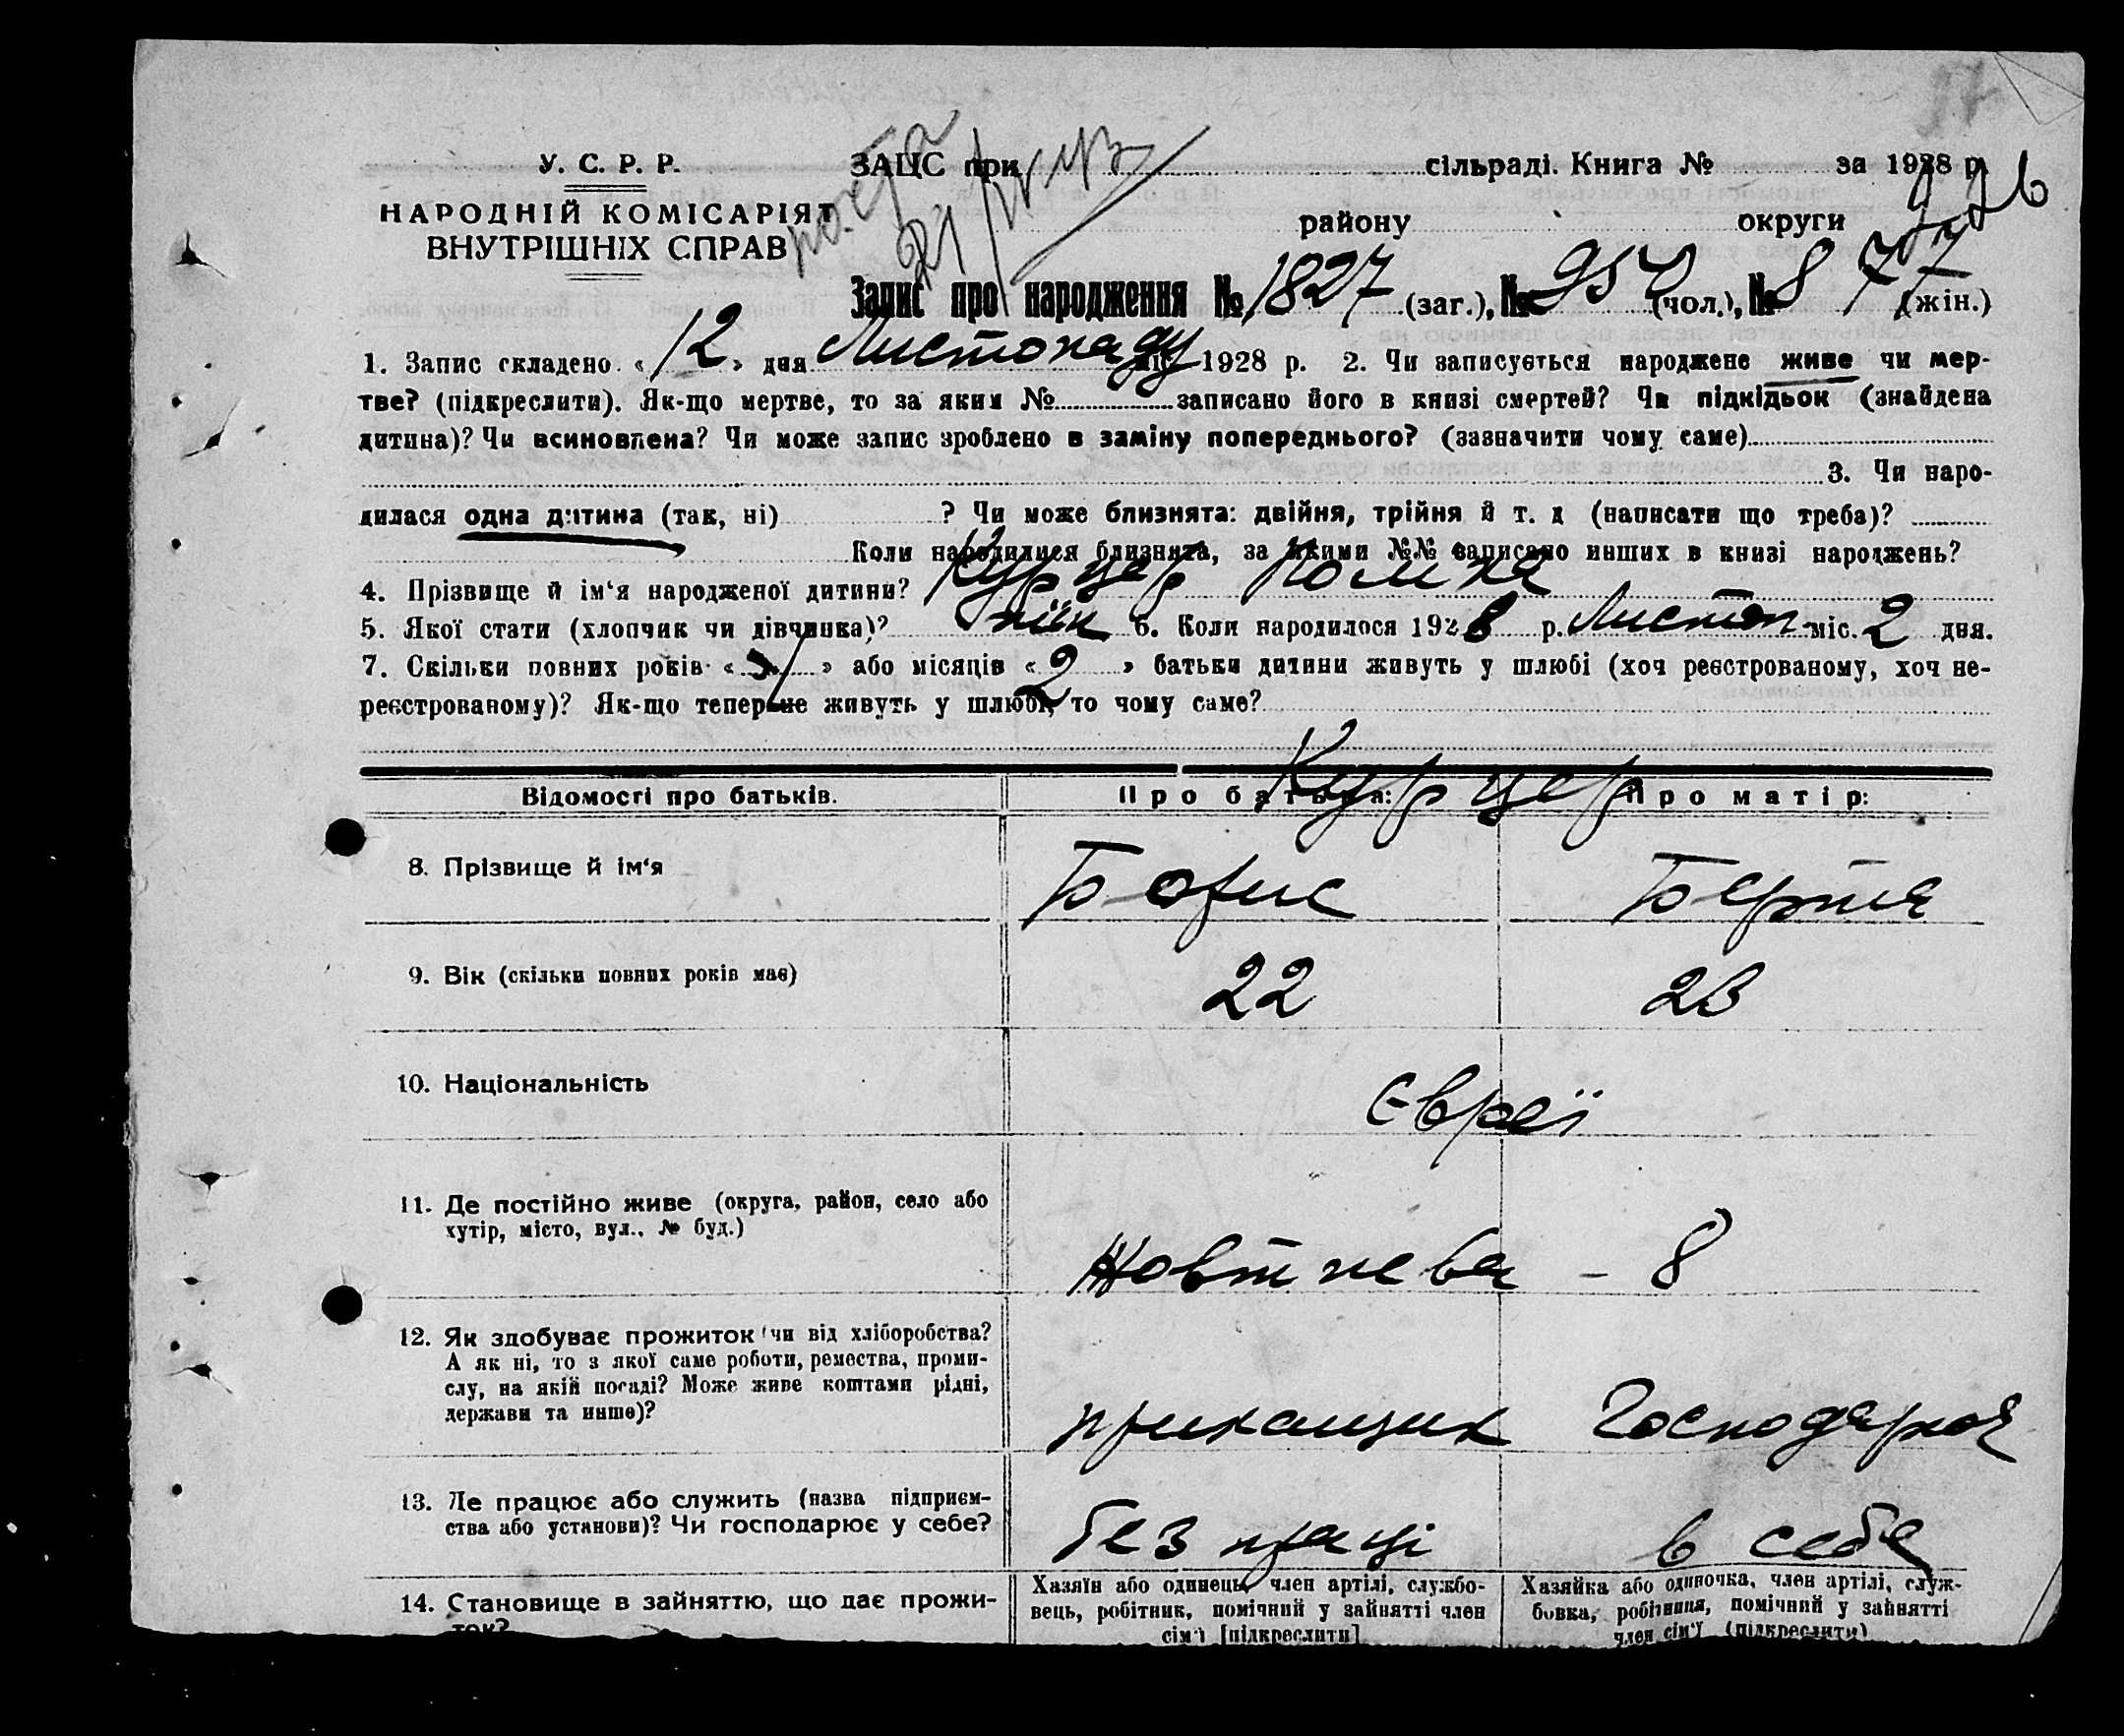 У. С. Р. Р.
НАРОДНІЙ КОМІСАРІЯТ
ВНУТРІШНІХ СПРАВ
ЗАЦС при сільраді. Книга № за 1928 р.
району округи
Запис про народження № 1827 (заг.), № 950 (чол.), № 877 (жін.)
1. Запис складено «12» дня Листопаду 1928 р. 2. Чи записується народжене живе чи мер-
тве? (підкреслити). Як-що мертве, то за яким № записано його в книзі смертей? Чи підкідьок (знайдена
дитина)? Чи всиновлена? Чи може запис зроблено в заміну попереднього? (зазначити чому саме)
3. Чи наро-
дилася одна дитина (так, ні) ? Чи може близнята: двійня, трійня й т. д (написати що треба)?
Коли народилися близнята, за якими №№ записано инших в книзі народжень?
4. Прізвище й ім'я народженої дитини? Курцер
5. Якої стати (хлопчик чи дівчинка)? жін 6. Коли народилося 1928 р. Листоп міс. 2 дня.
7. Скільки повних років « » або місяців «2» батьки дитини живуть у шлюбі (хоч реєстрованому, хоч не-
реєстрованому)? Як-що тепер не живуть у шлюбі, то чому саме?
Відомості про батьків. Про батька: Про матір:
Курцер
8. Прізвище й ім'я Борис Берта
9. Вік (скільки повних років має) 22 23
10. Національність Євреї
11. Де постійно живе (округа, район, село або
хутір, місто, вул., № буд.)
Жовтнева - 8
12. Як здобуває прожиток чи від хліборобства?
А як ні, то з якої саме роботи, ремества, проми-
слу, на якій посаді? Може живе коштами рідні,
держави та инше)?
прикащик Господарка
13. Де працює або служить (назва підприєм-
ства або установи)? Чи господарює у себе?
без праці в себе
14. Становище в зайняттю, що дає прожи-
ток?
Хазяїн або одинець, член артілі, службо-
вець, робітник, помічний у зайнятті член
сім'ї [підкреслити]
Хазяйка або одиночка, член артілі, служ-
бовка, робітниця, помічний у зайнятті
член сім'ї (підкреслити)